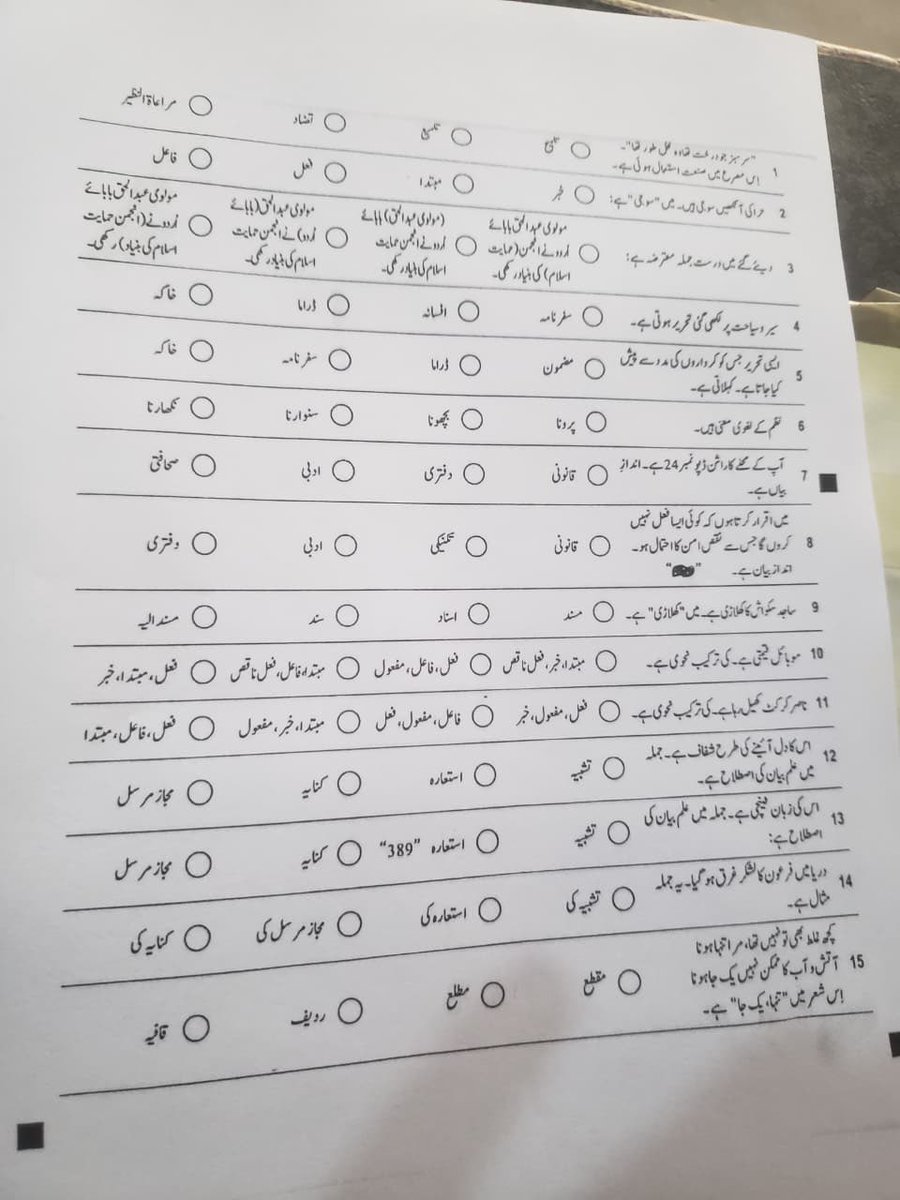 1 "سرسبز جو درخت تھا وہ نخل طور تھا"۔
اِس مصرع میں صنعت استعمال ہوئی ہے۔
تلمیح
تضاد
مراعاۃ النظیر
2 حرا کی آنکھیں سوجی ہیں۔ میں "سوجی" ہے:
خبر
مبتدا
فعل
فاعل
3 دیئے گئے میں درست جملہ معترضہ ہے:
مولوی عبدالحق بابائے
اُردو نے انجمن (حمایت
اسلام) کی بنیاد رکھی۔
(مولوی عبدالحق) بابائے
اُردو نے انجمن حمایت
اسلام کی بنیاد رکھی۔
مولوی عبدالحق (بابائے
اُردو) نے انجمن حمایت
اسلام کی بنیاد رکھی۔
مولوی عبدالحق بابائے
اُردو نے (انجمن حمایت
اسلام کی بنیاد) رکھی۔
4 سیر و سیاحت پر لکھی گئی تحریر ہوتی ہے۔
سفرنامہ
افسانہ
ڈراما
خاکہ
5 ایسی تحریر جس کو کرداروں کی مدد سے پیش
کیا جاتا ہے۔ کہلاتی ہے۔
مضمون
ڈراما
سفرنامہ
خاکہ
6 نظم کے لغوی معنی ہیں۔
پرونا
بچھونا
سنوارنا
نکھارنا
7 آپ کے محلے کا راشن ڈپو نمبر 24 ہے۔ اندازِ
بیاں ہے۔
قانونی
دفتری
ادبی
صحافتی
8 میں اقرار کرتا ہوں کہ کوئی ایسا فعل نہیں
کروں گا جس سے نقص امن کا احتمال ہو۔
انداز بیان ہے۔
قانونی
تکنیکی
ادبی
دفتری
9 ساجد سکواش کا کھلاڑی ہے۔ میں "کھلاڑی" ہے۔
مسند
اسناد
سند
مسند الیہ
10 موبائل قیمتی ہے۔ کی ترکیب نحوی ہے۔
مبتدا، خبر، فعل ناقص
فعل، فاعل، مفعول
مبتدا، فاعل، فعل ناقص
فعل، مبتدا، خبر
11 ناصر کرکٹ کھیل رہا ہے۔ کی ترکیب نحوی ہے۔
فعل، مفعول، خبر
فاعل، مفعول، فعل
مبتدا، خبر، مفعول
فعل، فاعل، مبتدا
12 اس کا دل آئینے کی طرح شفاف ہے۔ جملہ
میں علم بیان کی اصطلاح ہے۔
تشبیہ
استعارہ
کنایہ
مجاز مرسل
13 اس کی زبان قینچی ہے۔ جملہ میں علم بیان کی
اصطلاح ہے:
تشبیہ
استعارہ "389"
کنایہ
مجاز مرسل
14 دریا میں فرعون کا لشکر غرق ہو گیا۔ یہ جملہ
مثال ہے۔
تشبیہ کی
استعارہ کی
مجاز مرسل کی
کنایہ کی
15 کچھ غلط بھی تو نہیں تھا، مرا تنہا ہونا
آتش و آب کا ممکن نہیں یک جا ہونا
اِس شعر میں "تنہا، یک جا" ہے۔
مقطع
مطلع
ردیف
قافیہ